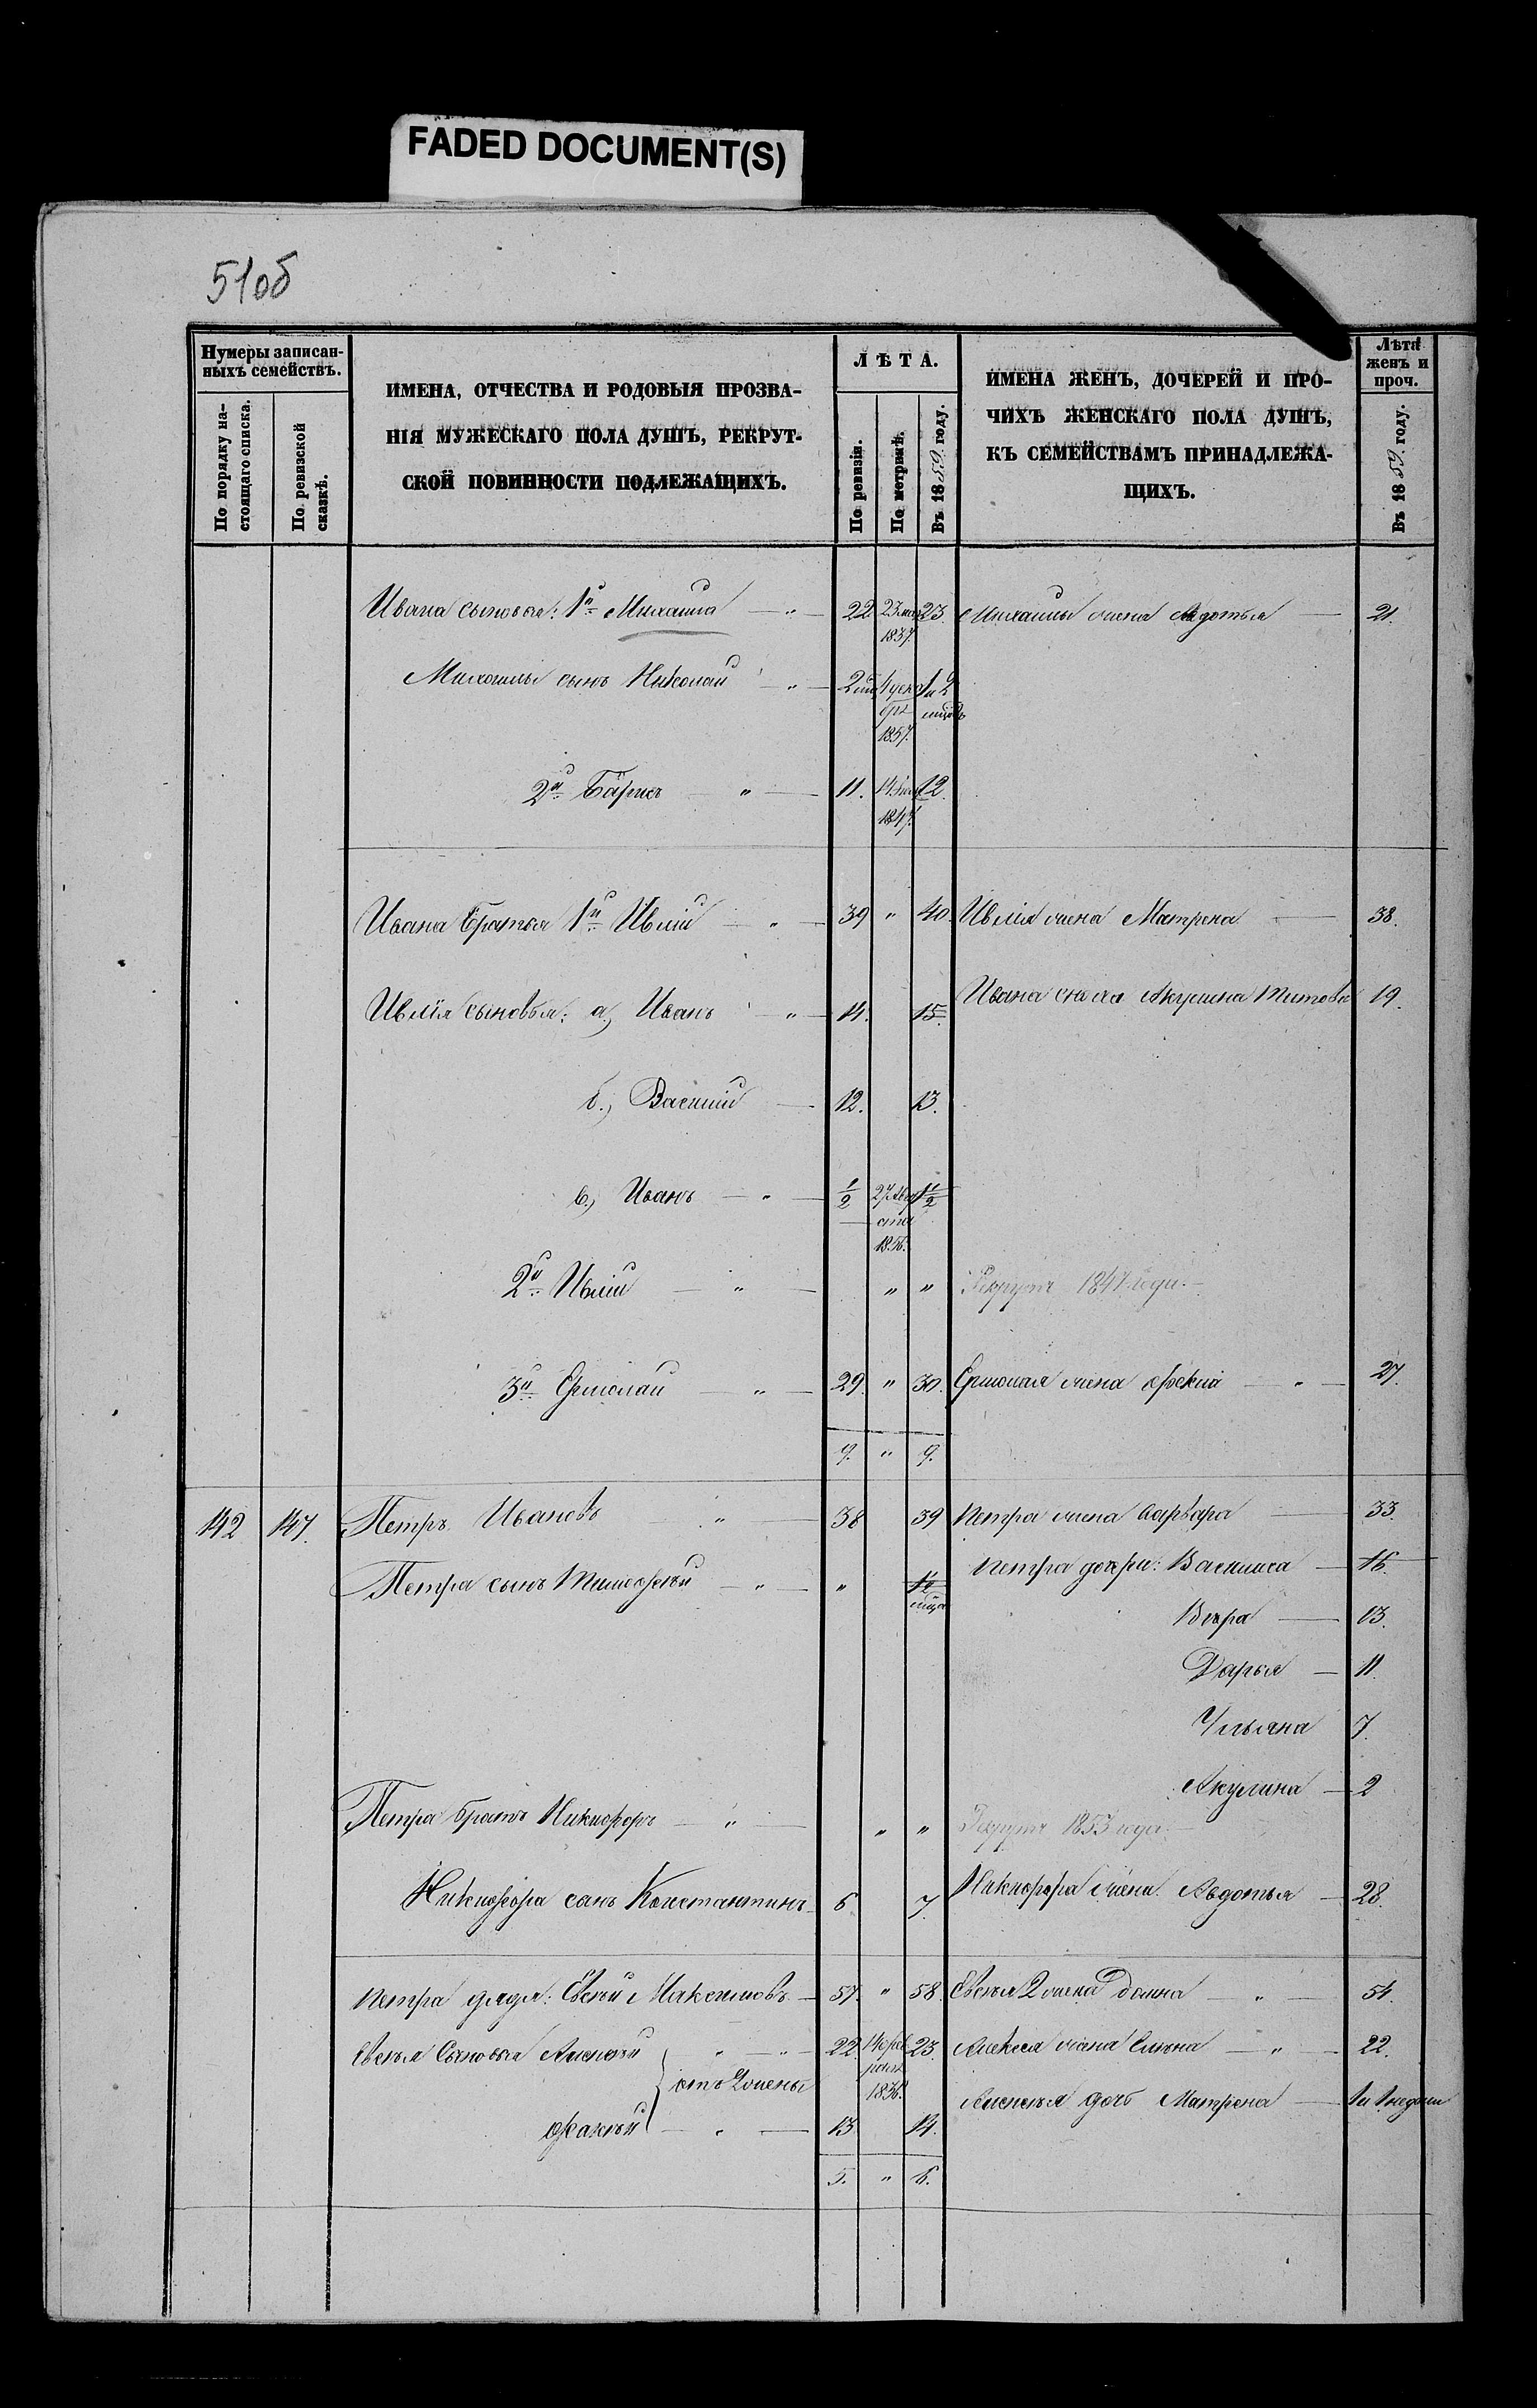 FADED DOCUMENT(S)
51об
Нумеры записан-
ныхъ семействъ.
По порядку на-
стоящаго списка.
По ревизской
сказкѣ.
ИМЕНА, ОТЧЕСТВА И РОДОВЫЯ ПРОЗВА-
НІЯ МУЖЕСКАГО ПОЛА ДУШЪ, РЕКРУТ-
СКОЙ ПОВИННОСТИ ПОДЛЕЖАЩИХЪ.
ЛѢТА.
По ревизіи.
По метрикѣ.
Въ 1859 году.
ИМЕНА ЖЕНЪ, ДОЧЕРЕЙ И ПРО-
ЧИХЪ ЖЕНСКАГО ПОЛА ДУШЪ,
КЪ СЕМЕЙСТВАМЪ ПРИНАДЛЕЖА-
ЩИХЪ.
Лѣта
женъ и
проч.
Въ 1859 году.
Ивана сыновья: 1й Михаила — " — 22 23 23. Михаилы жена Авдотья — 21.
1837.
Михаилы сынъ Николай " — 4 дека 1 и 2
бря
1857.
2й — " — 11. 12.
1847.
Ивана братья 1й Ивлій — " — 39 " 40. Ивлія жена Матрена — 38.
Ивлія сыновья: а, Иванъ — " — 14. 15. Ивана Акулина Титова 19.
б., Василій — 12. 13.
в., Иванъ — " — 1/2 27 Авгу 1 1/2
ста
1856.
2й Ивлій — " — " " Рекрутъ 1847 года. —
3й Ермолай — " — 29. " 30. Ермолая жена — " — 27.
9. " 9.
142 147. Петръ Ивановъ — " — 38 39 Петра жена Варвара — 33.
Петра сынъ Тимофей — " — " Петра дочери: Василиса — 16.
Вера — 13.
Дарья — 11.
Ульяна 7.
Акулина — 2
Петра братъ Никифоръ — " — " " Рекрутъ 1853 года. —
Никифора сынъ Константинъ 6 7. Никифора жена Авдотья — 28.
Петра дядя: Евсѣй Максимовъ — 57. " 58. Евсѣя 2 жена Домна — " — 54.
Евсѣя Сыновья Алексѣй " — " — 22. 14 фев 23. Алексѣя жена Елена — " — 22.
раля
отъ 2 жены 1836. Алексѣя дочь Матрена — 1 и 1 недели
Фадѣй — " — 13 14.
5. " 6.